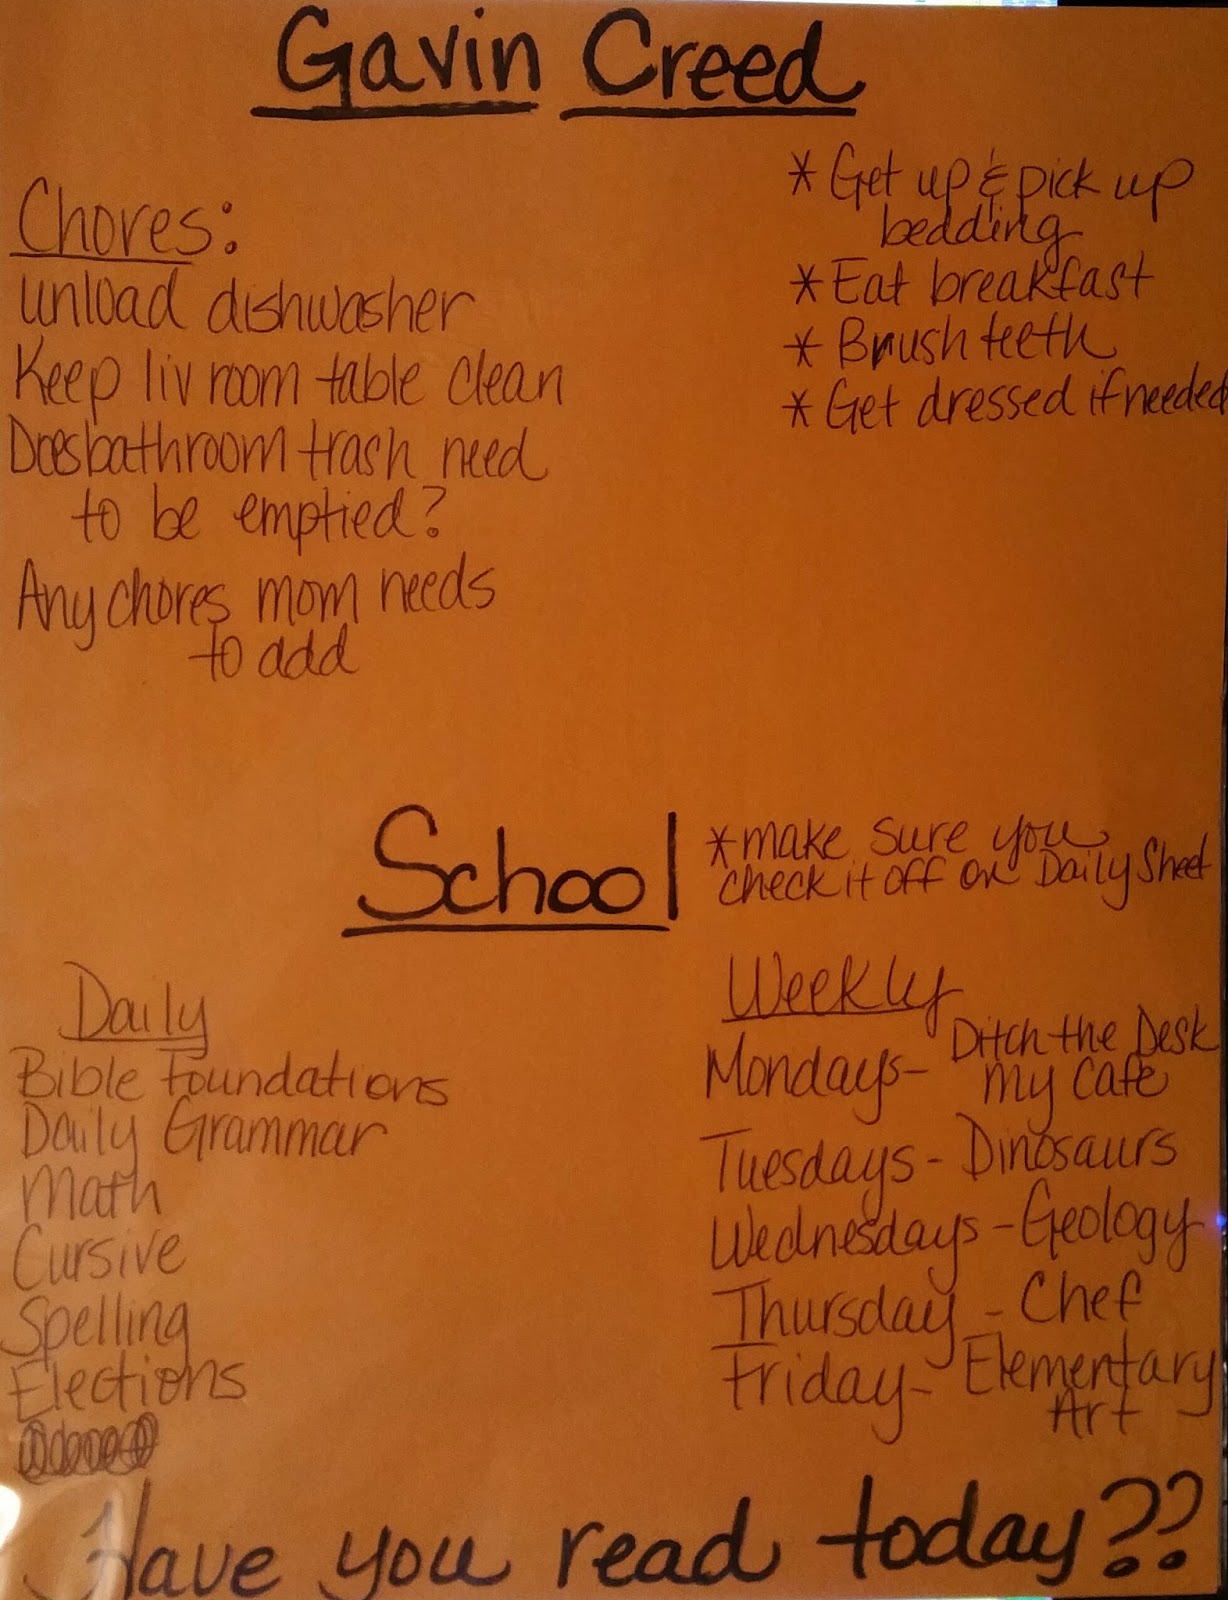 Gavin Creed
Chores:
unload dishwasher
Keep liv room table clean
Does bathroom trash need
to be emptied?
Any chores mom needs
to add
* Get up & pick up
bedding
* Eat breakfast
* Brush teeth
* Get dressed if needed
School
* make sure you
check it off on Daily Sheet
Daily
Bible Foundations
Daily Grammar
Math
Cursive
Spelling
Elections
Weekly
Mondays- Ditch the Desk
My Cafe
Tuesdays - Dinosaurs
Wednesdays - Geology
Thursday - Chef
Friday - Elementary
Art
Have you read today??